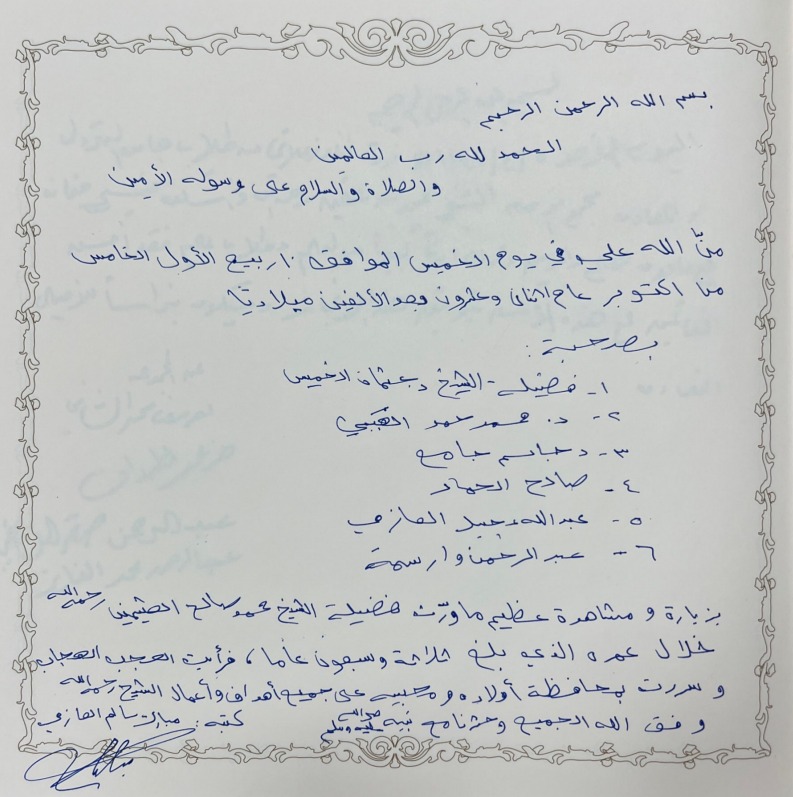 بسم الله الرحمن الرحيم
الحمد لله رب العالمين
والصلاة والسلام على رسوله الأمين
منّ الله علي في يوم الخميس الموافق ١٠ ربيع الأول الخامس
من اكتوبر عام اثنان وعشرون وبعد الألفين ميلاديًا
بصحبة :
١- فضيلة الشيخ د عثمان الخميس
٢- د. محمد حمد
٣- د جاسم جامع
٤- صالح الحماد
٥- عبدالله دخيل العازمي
٦- عبدالرحمن وارسمة
بزيارة و مشاهدة عظيم ما ورّث فضيلة الشيخ محمد صالح العثيمين رحمه الله
خلال عمره الذي بلغ ثلاثة وسبعون عاما، فرأيت العجب العجاب
و سررت بمحافظة أولاده و محبيه على جميع أهداف وأعمال الشيخ رحمه الله
وفق الله الجميع وحشرنا مع نبيه صلى الله عليه وسلم كتبه : مبارك سالم العازمي